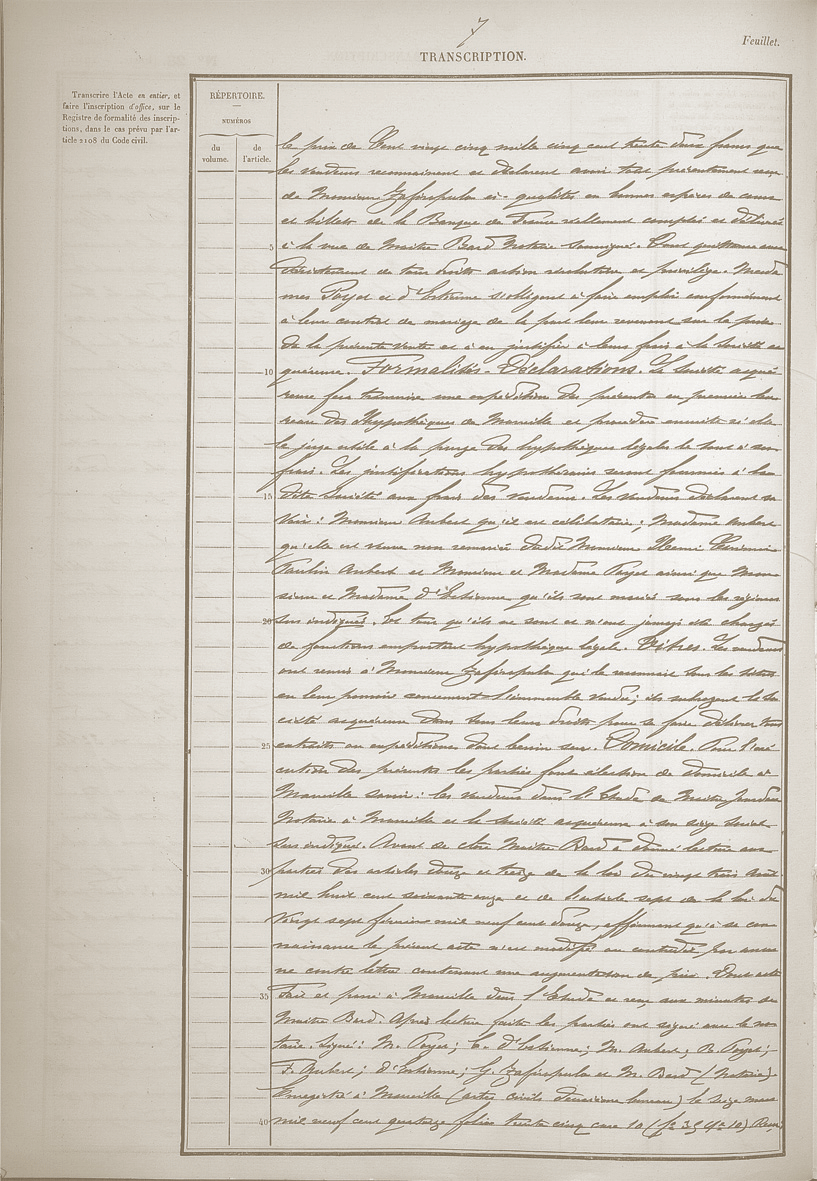 7
Feuillet.
TRANSCRIPTION.
Transcrire l'Acte en entier, et
faire l'inscription d'office, sur le
Registre de formalité des inscrip-
tions, dans le cas prévu par l'ar-
ticle 2108 du Code civil.
RÉPERTOIRE.
NUMÉROS
du volume.
de l'article.
le prix de Cent vingt cinq mille cinq cent trente deux francs que
les vendeurs reconnaissent et déclarent avoir tout présentement reçu
de Monsieur Zafiropulo ès-qualités en bonnes espèces de cours
et billets de la Banque de France réellement comptés et délivrés
5 à la vue de Maître Bard Notaire soussigné. Dont quittance avec
désistement de tous droits action résolutoire et privilège. Mesda
mes Poyet et d'Estienne s'obligent à faire emploi conformément
à leur contrat de mariage de la part leur revenant sur le prix
de la présente vente et à en justifier à leurs frais à la Société ac
10 quéreuse. Formalités-Déclarations. La Société acqué
reuse fera transcrire une expédition des présentes au premier bu
reau des hypothèques de Marseille et procédera ensuite si elle
le juge utile à la purge des hypothèques légales le tout à ses
frais. Les justifications hypothécaires seront fournies à la
15 dite Société aux frais des vendeurs. Les vendeurs déclarent sa
voir: Monsieur Aubert qu'il est célibataire; Madame Aubert
qu'elle est veuve non remariée dudit Monsieur Henri
Paulin Aubert et Monsieur et Madame Poyet ainsi que Mon
sieur et Madame d'Estienne qu'ils sont mariés sous les régimes
20 sus indiqués. Et tous qu'ils ne sont et n'ont jamais été chargés
de fonctions emportant hypothèque légale. Titres. Les vendeurs
ont remis à Monsieur Zafiropulo qui le reconnait tous les titres
en leur pouvoir concernant l'immeuble vendu; ils subrogent la So
ciété acquéreuse dans tous leurs droits pour se faire délivrer tous
25 extraits ou expéditions dont besoin sera. Domicile. Pour l'exé
cution des présentes les parties font élection de domicile à
Marseille savoir: les vendeurs dans l'Etude de Maître Jourdan
Notaire à Marseille et la Société acquéreuse à son siège social
sus indiqué. Avant de clore Maître Bard a donné lecture aux
30 parties des articles douze et treize de la loi du vingt trois août
mil huit cent soixante onze et de l'article sept de la loi du
vingt sept février mil neuf cent douze, affirmant qu'à sa con
naissance le présent acte n'est modifié ou contredit par aucu
ne contre lettre contenant une augmentation de prix. Dont acte
35 Fait et passé à Marseille dans l'Etude et reçu aux minutes de
Maître Bard. Après lecture faite les parties ont signé avec le no
taire. Signé: M. Poyet; C. d'Estienne; M. Aubert; R. Poyet;
F. Aubert; d'Estienne; G. Zafiropulo et M. Bard (Notaire).
Enregistré à Marseille (actes civils deuxième bureau) le seize mars
40 mil neuf cent quatorze folio trente cinq case 10